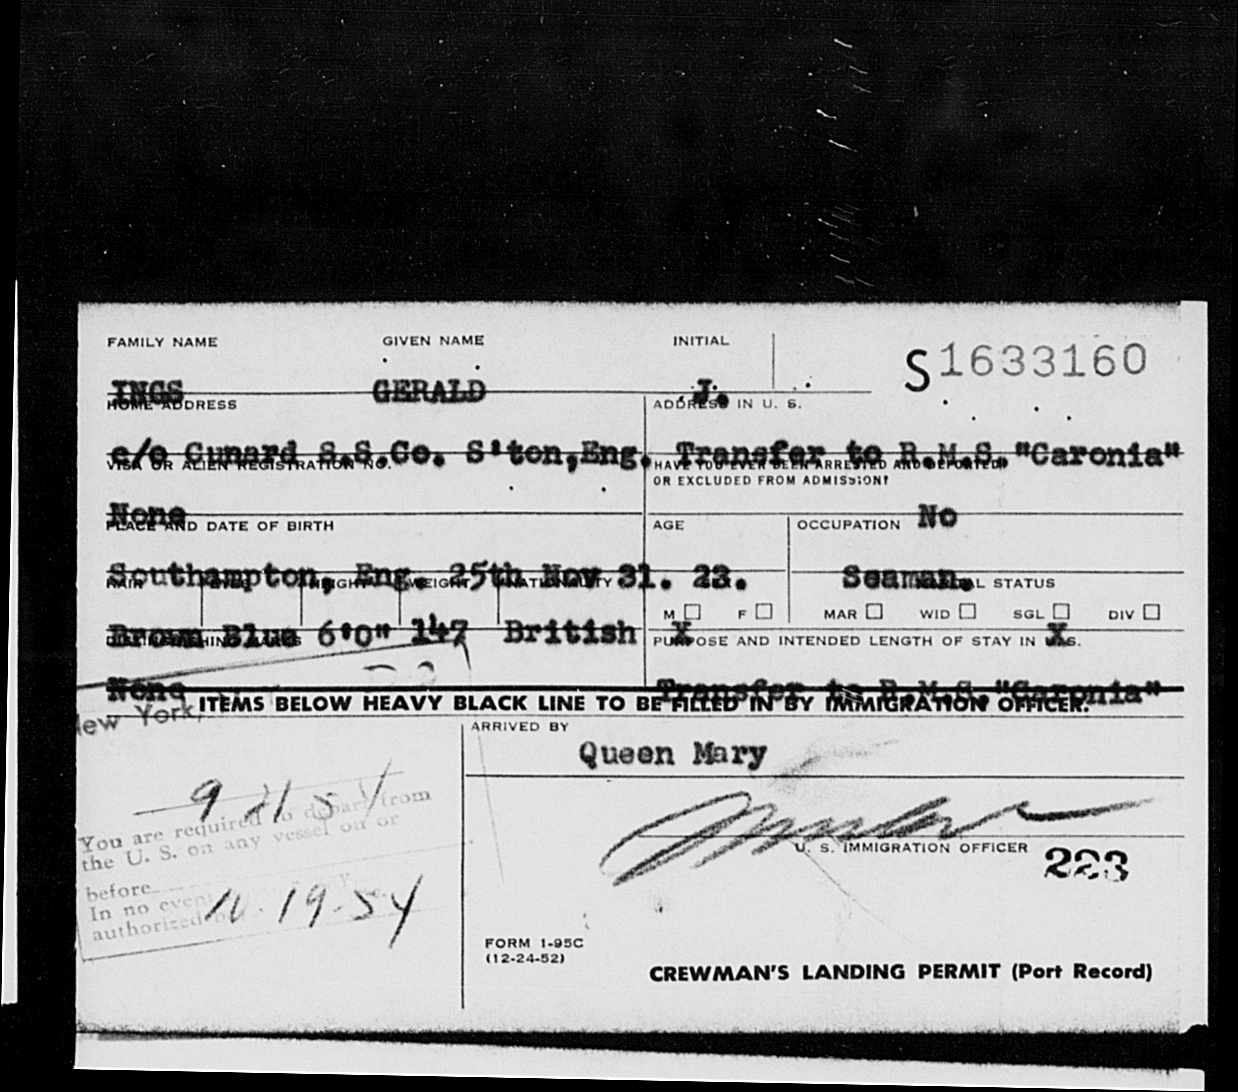 FAMILY NAME GIVEN NAME INITIAL
S1633160
INGS GERALD J.
HOME ADDRESS ADDRESS IN U. S.
c/o Cunard S.S.Co. S'ton,Eng. Transfer to R.M.S."Caronia"
VISA OR ALIEN REGISTRATION NO. HAVE YOU EVER BEEN ARRESTED AND DEPORTED
OR EXCLUDED FROM ADMISSION?
None No
PLACE AND DATE OF BIRTH AGE OCCUPATION
Southampton, Eng. 25th Nov 31. 23. Seaman.
HAIR EYES HEIGHT WEIGHT NATIONALITY MARITAL STATUS
M F MAR WID SGL DIV
Brown Blue 6'0" 147 British X X
PURPOSE AND INTENDED LENGTH OF STAY IN U.S.
None Transfer to R.M.S."Caronia"
New York,
ITEMS BELOW HEAVY BLACK LINE TO BE FILLED IN BY IMMIGRATION OFFICER.
ARRIVED BY
Queen Mary
9 21 54
You are required to depart from
the U. S. on any vessel on or
before
In no event
authorized
10.19-54
U. S. IMMIGRATION OFFICER 223
FORM 1-95C
(12-24-52)
CREWMAN'S LANDING PERMIT (Port Record)